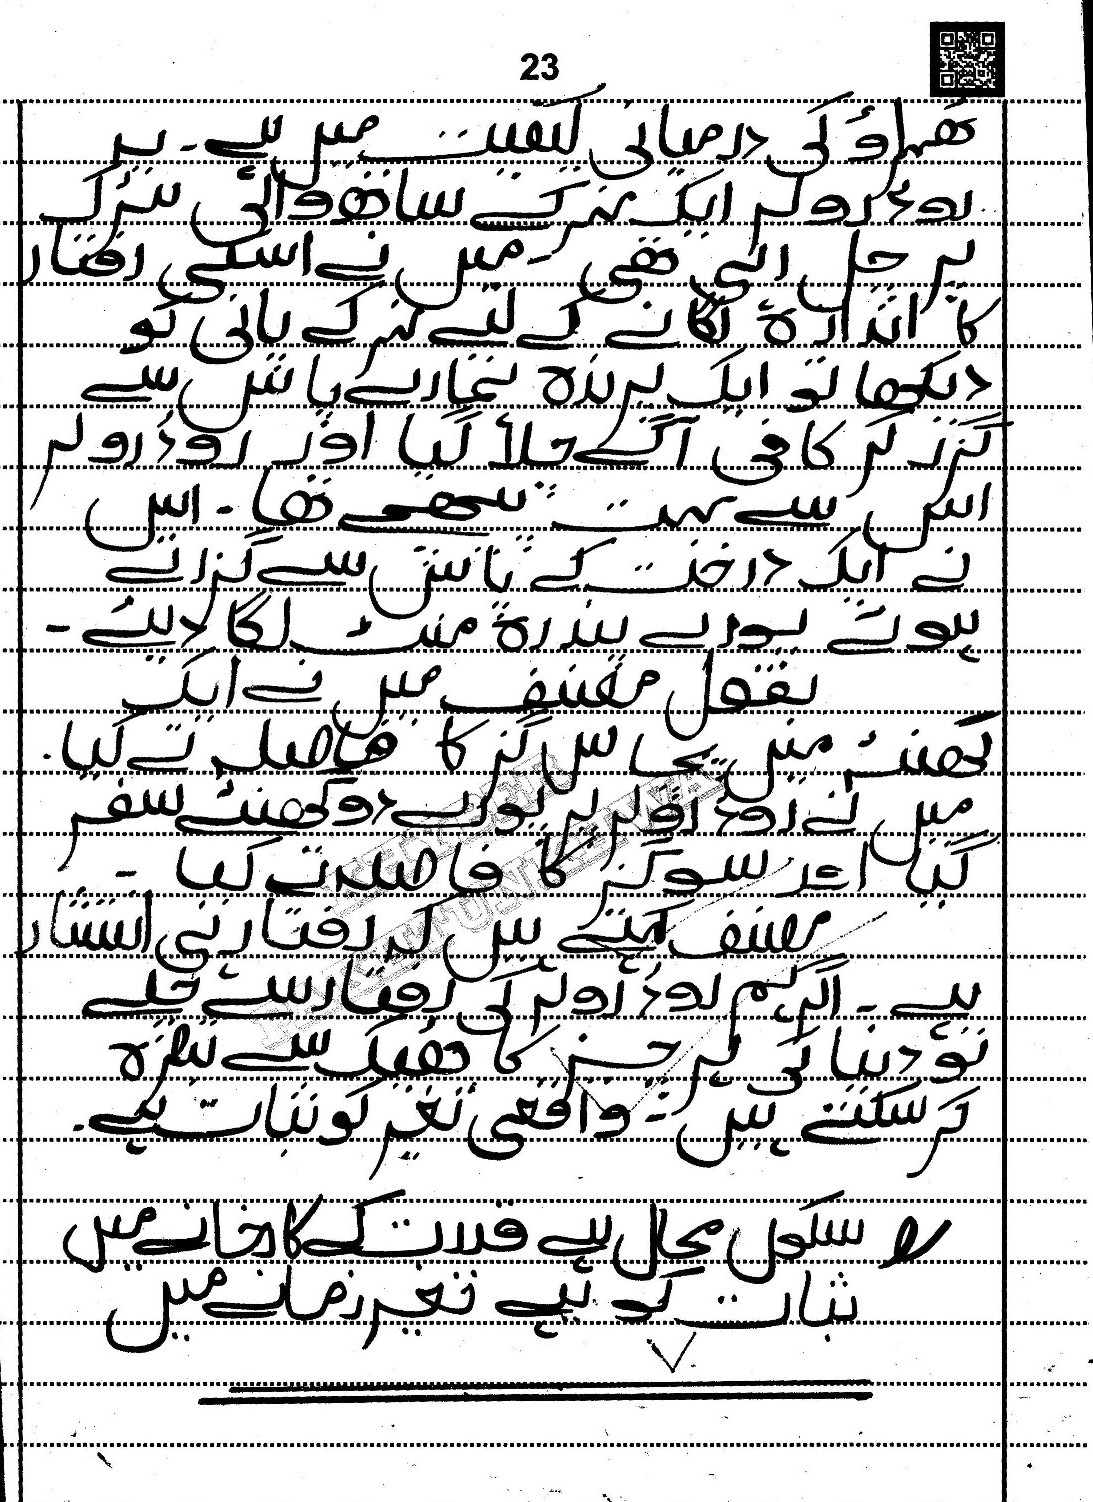 23
ٹھہراؤ کی درمیانی کیفیت میں ہے۔ یہ
روڈ رولر ایک نہر کے ساتھ والی سڑک
پر چل رہی تھی۔ میں نے اسکی رفتار
کا اندازہ لگانے کے لئے نہر کے پانی کو
دیکھا تو ایک پرندہ ہمارے پاس سے
گزر کر کافی آگے چلا گیا اور روڈ رولر
اس سے بہت پیچھے تھا۔ اس
نے ایک درخت کے پاس سے گزرتے
ہوئے پورے پندرہ منٹ لگا دیئے۔
بقول مصنف میں نے ایک
گھنٹہ میں پچاس گز کا فاصلہ تے کیا.
میں نے روڈ رولر پر پورے دو گھنٹے سفر
کیا اور سو گز کا فاصلہ تے کیا ۔
مصنف کہتے ہیں کہ رفتار ہی انتشار
ہے۔ اگر ہم روڈ رولر کی رفتار سے چلے
تو دنیا کی ہر چیز کا ٹھیک سے تبصرہ
کر سکتے ہیں۔ واقعی تغیر کو ثبات ہے.
سکوں محال ہے قدرت کے کارخانے میں
ثبات کو ہے تغیر زمانے میں